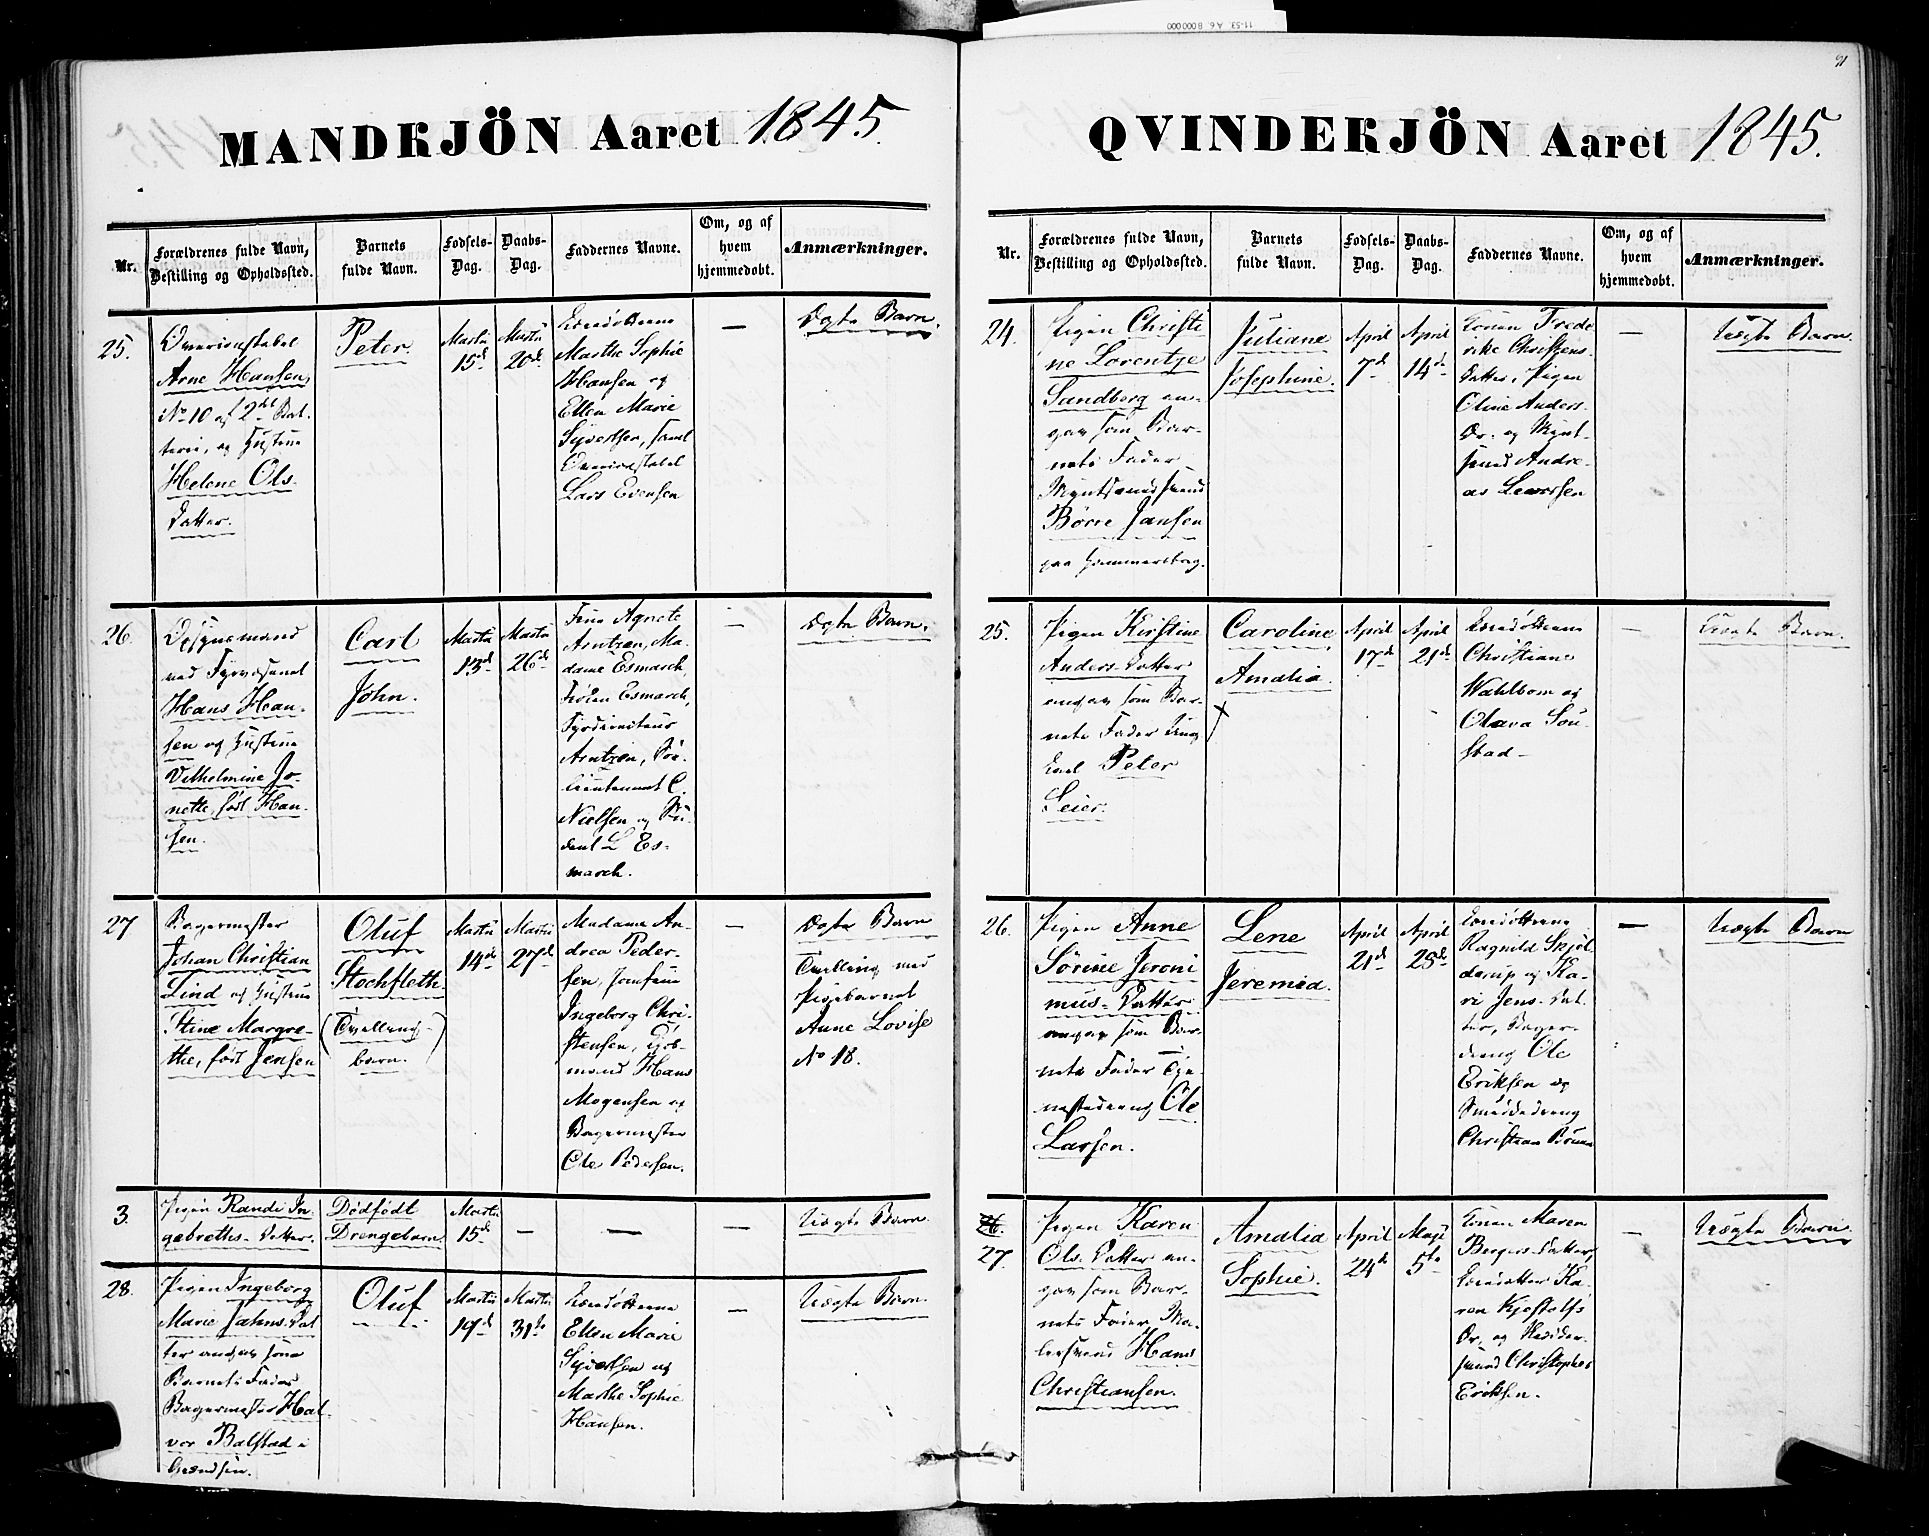 11-53. A6. 8000000
91
MANDKJÖN Aaret 1845.
Nr.
Forældrenes fulde Navn,
Bestilling og Opholdssted.
Barnets
fulde Navn.
Fødsels-
Dag.
Daabs-
Dag.
Faddernes Navne.
Om, og af
hvem
hjemmedøbt.
Anmærkninger.
25.
Arne Hansen,
No 10 af 2det Bat-
terie, og Hustrue
Helene Ols-
Datter.
Peter.
Martii
15de
Martii
20de
Marthe Sophie
Hansen og
Ellen Marie
Syvertsen, samt
Lars Evensen
—
Ægte Barn.
26.
ved Fyrvæsenet
Hans Han-
sen og Hustrue
Vilhelmine Jo-
nette, født Han-
sen.
Carl
John.
Martii
13de
Martii
26de
Frue Agnete
Arntzen, Ma-
dame Esmarch,
Frøken Esmarch,
Arntzen,
Nielsen og Stu-
dent L Es-
march.
—
Ægte Barn.
27
Bagermester
Johan Christian
Lind og Hustrue
Stine Margre-
the, født Jensen
Oluf
Stochfleth.
(Tvilling-
barn.)
Martii
14de
Martii
27de
Madame An-
drea Peder-
sen, Jomfrue
Ingeborg Chri-
stensen,
mand Hans
Mogensen og
Bagermester
Ole Pedersen.
—
Ægte Barn
Tvilling med
Pigebarnet
Anne Lovise
No 18.
3.
Pigen Randi In-
gebreths-Datter.
Dødfødt
Drengebarn.
Martii
15de
—
—
—
Uægte Barn.
28.
Pigen Ingeborg
Marie Jahns-Dat
ter angav som
Barnets Fader
Bagermester Hal-
vor Balstad i
Oluf.
Martii
19de
Martii
31te
Ellen Marie
Syvertsen og
Marthe Sophie
Hansen.
—
Uægte Barn.
QVINDEKJÖN Aaret 1845.
Nr.
Forældrenes fulde Navn,
Bestilling og Opholdssted.
Barnets
fulde Navn.
Fødsels-
Dag.
Daabs-
Dag.
Faddernes Navne.
Om, og af
hvem
hjemmedøbt.
Anmærkninger.
24.
Pigen Christi
ne Lorentze
Sandberg an-
gav som Bar-
nets Fader
Børre Jansen
paa Hammersborg.
Juliane
Josephine.
April
7de
April
14de
Konen Frede
rike Christens-
Datter, Pigen
Oline Anders-
Dr. og Mynt-
svend Andre-
as Larssen
—
Uægte Barn.
25.
Pigen Kirstine
Anders-Datter
angav som Bar-
nets Fader Ung
karl Peter
Seier.
Caroline
Amalia.
April
17de
April
21de
Christiane
Wahlbom og
Olava Sou-
stad-
—
Uægte Barn.
26.
Pigen Anne
Sørine Jeroni
mus-Datter
angav som Bar-
nets Fader Tje-
nestedreng Ole
Larsen.
Lene
Jeremia.
April
21de
April
25de
Ragnild Skjöl
derup og Ka-
ri Jens-Dat-
ter, Bager-
dreng Ole
Eriksen og
Smeddedreng
Christian Bruun
—
Uægte Barn
26.
27.
Pigen Karen
Ols-Datter an-
gav som Bar-
nets Fader, Ma-
lersvend Hans
Christiansen.
Amalia
Sophie.
April
24de
Maji
5te
Konen Maren
Bergers-Datter,
Ka-
ren Kjøstolfs
Dr. og
svend Christopher
Eriksen.
—
Uægte Barn.